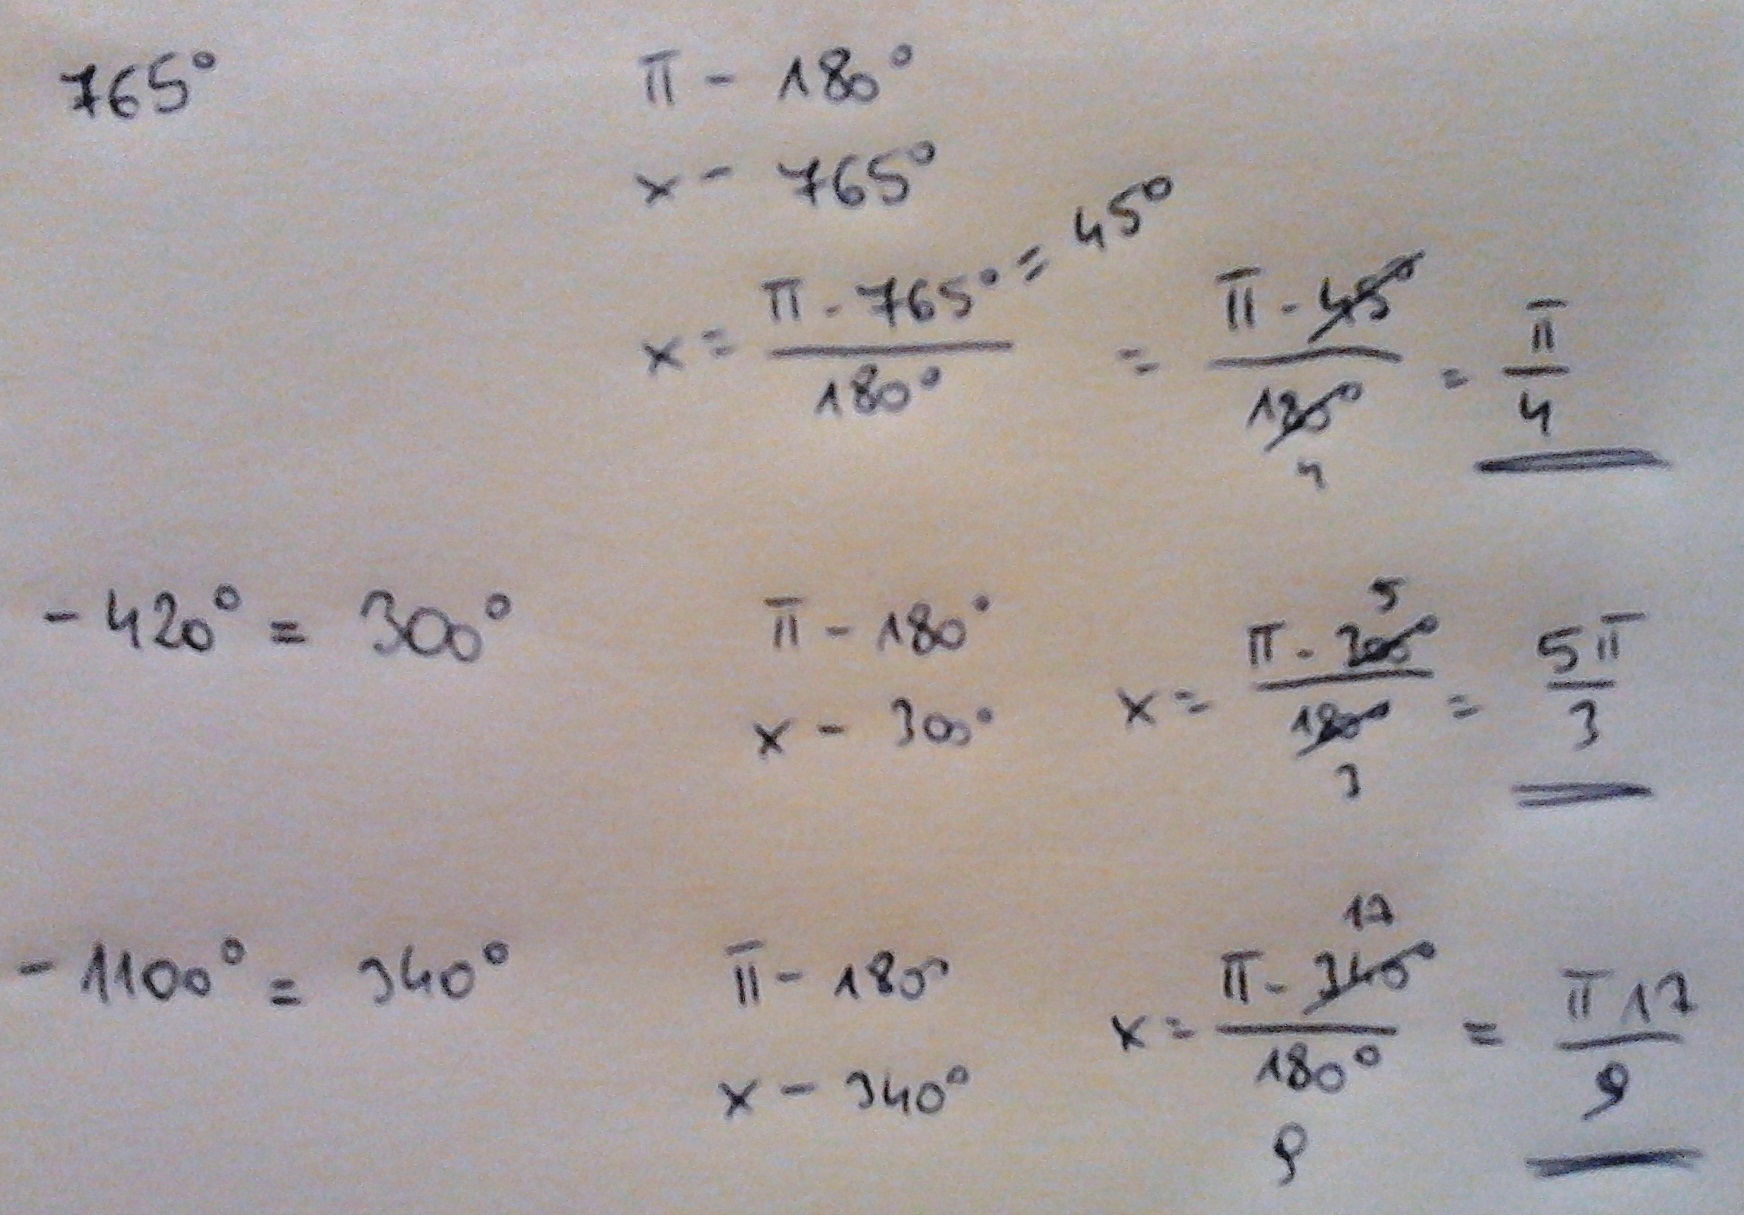 765°
π - 180°
x - 765°
x = π · 765° / 180° = 45° = π · 45° / 180° 4 = π / 4
- 420° = 300°
π - 180°
x - 300°
x = π · 300° 5 / 180° 3 = 5π / 3
- 1100° = 340°
π - 180°
x - 340°
x = π · 340° 17 / 180° 9 = π 17 / 9